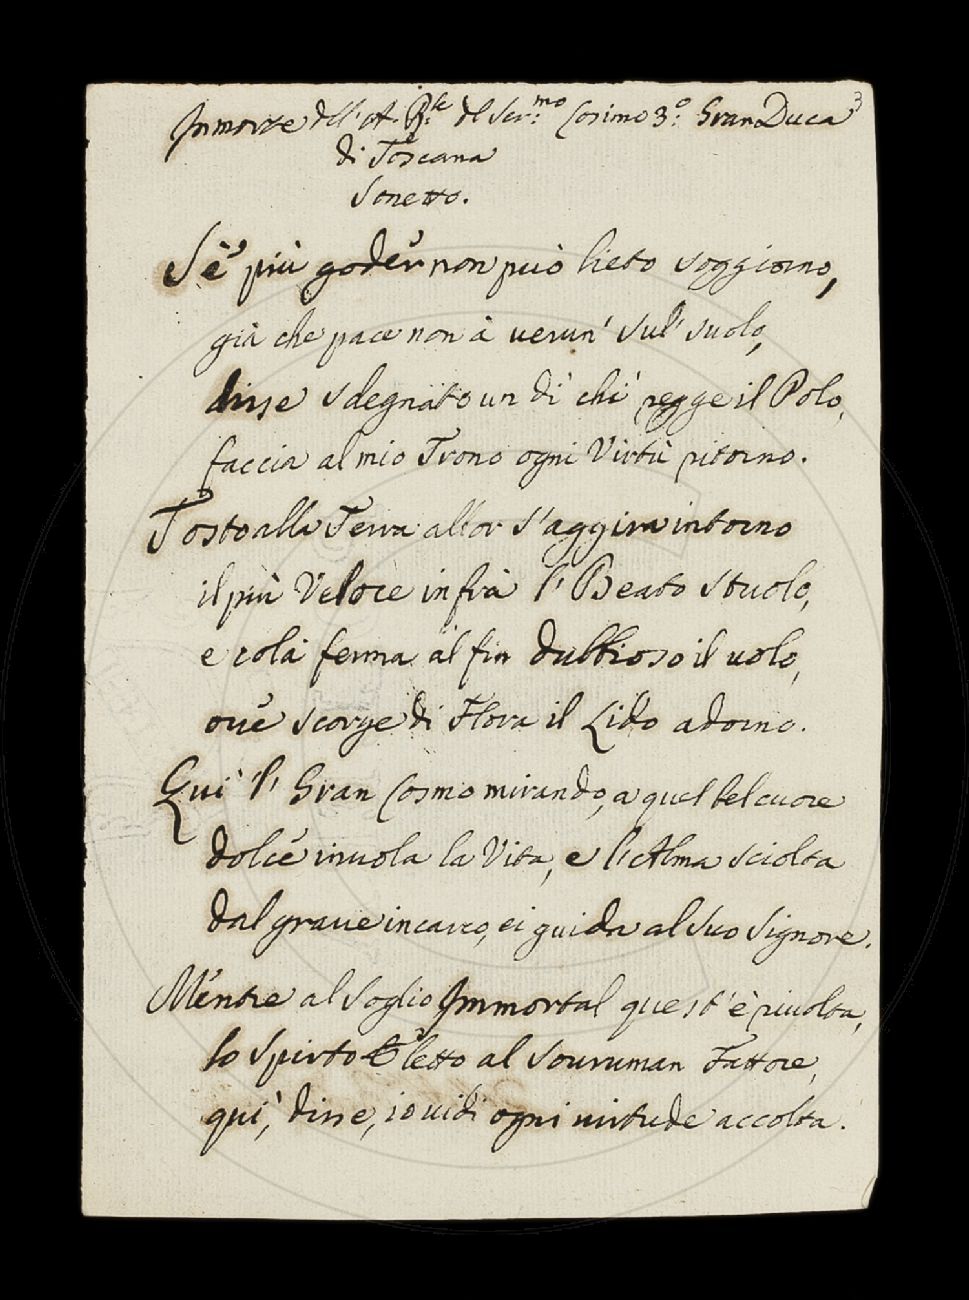 In morte dell'A. R.le del Ser.mo Cosimo 3.o Gran Duca
3
di Toscana
Sonetto.
Sè più goder non può lieto soggiorno,
già che pace non à uerun' sul' suolo,
disse sdegnato un dì chi regge il Polo,
faccia al mio Trono ogni Virtù ritorno.
Tosto alla Terra allor s'aggira intorno
il più Veloce infrà l' Beato stuolo,
e colà ferma al fin dubbioso il uolo,
oue scorge di Flora il Lido adorno.
Qui 'l Gran Cosmo mirando, a quel bel cuore
dolce inuola la Vita, e l'Alma sciolta
dal graue incarco, ei guida al suo Signore.
Mentre al soglio Immortal quest' è riuolta,
lo Spirto eletto al Souruman Fattore,
qui, disse, io uidi ogni uirtude accolta.